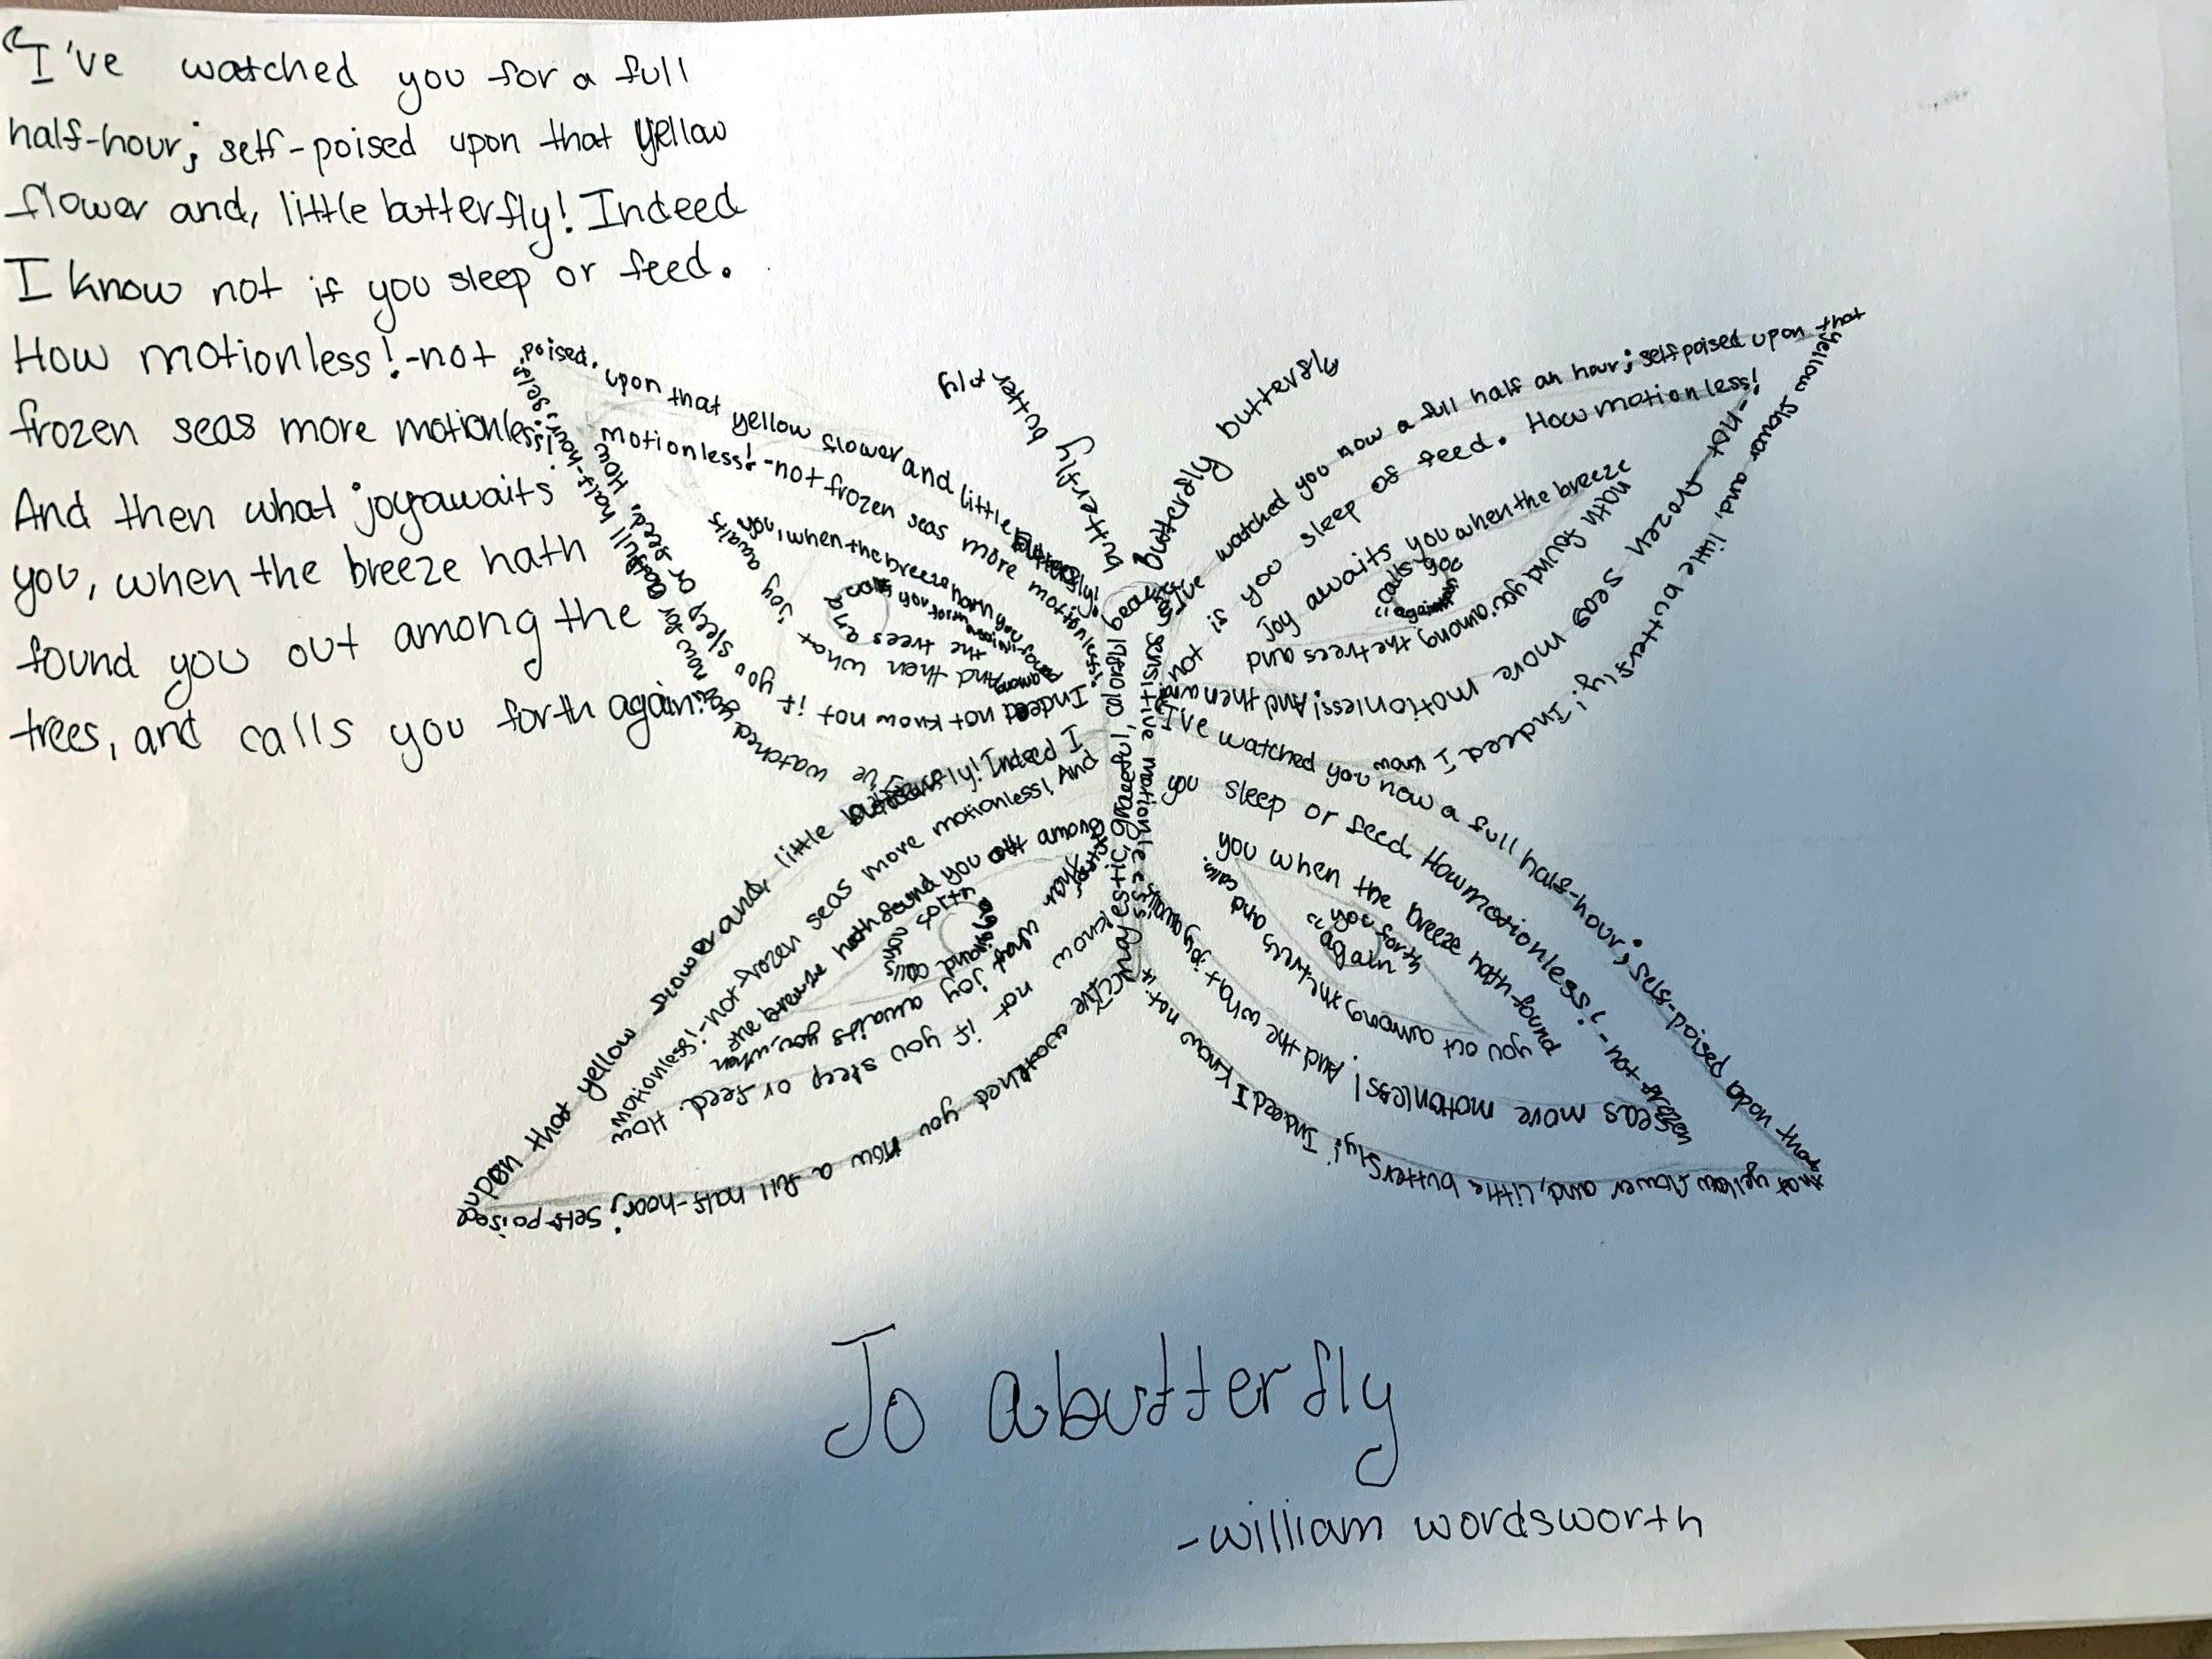 "I've watched you for a full
half-hour; self-poised upon that yellow
flower and, little butterfly! Indeed
I know not if you sleep or feed.
How motionless!-not
frozen seas more motionless!
And then what joy awaits
you, when the breeze hath
found you out among the
trees, and calls you forth again!
butterfly butterfly
butterfly butterfly
I've watched you now a full half-hour; self-
poised. upon that yellow flower and little butterfly!
Indeed not know not if you sleep or feed, How
motionless!-not frozen seas more motionless!
And then what joy awaits
you, when the breeze hath you
among the trees and
I've watched you now a full half an hour; self poised upon that
yellow flower and, little butterfly! Indeed I know
not if you sleep of feed. How motionless!
-not frozen seas more motionless! And then
joy awaits you when the breeze
hath found you among the trees and
calls you
again
sensitive motionless
I've watched you now a full half-hour; self-poised upon that
that yellow flower and, little butterfly! Indeed I know not if
you sleep or feed. How motionless! -not frozen
seas more motionless! And the what joy awaits
you when the breeze hath found
you out among the trees and calls
you forth
again
watched you now a full half-hoor; self-poised
upon that yellow flower and, little butterfly! Indeed I
know not if you sleep or feed. How
motionless!-not frozen seas more motionless! And
what joy awaits you, when
the breeze hath found you out among
and calls
you forth
again
To a butterfly
-william wordsworth